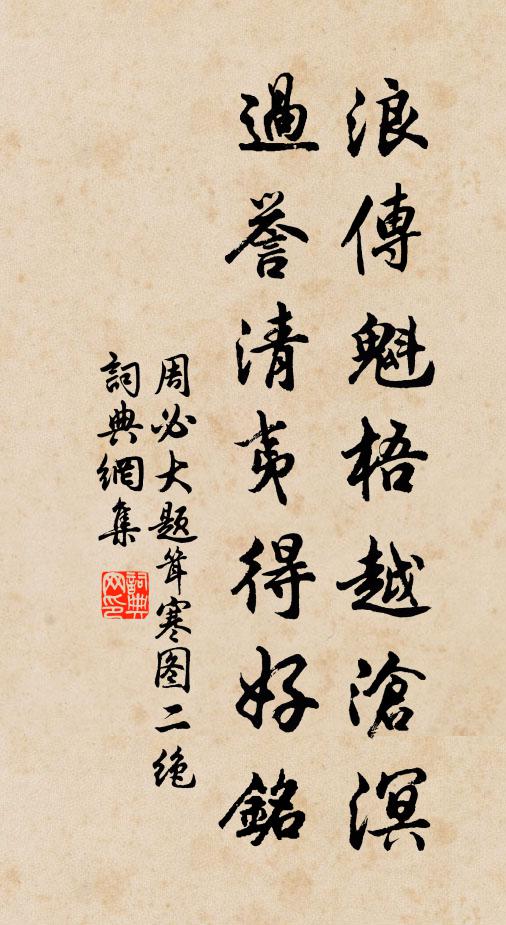 浪傳魁梧越滄溟
過譽清夷得好銘
周必大题耸寒图二绝
詞典網集
詞典网印